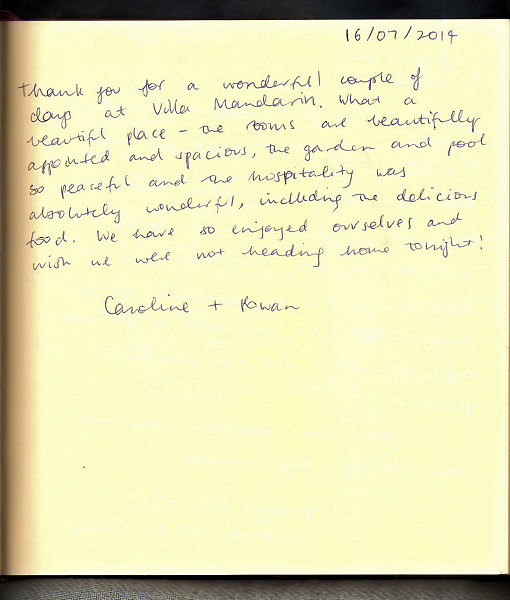 16/07/2014
Thank you for a wonderful couple of
days at Villa Mandarin. What a
beautiful place - the rooms are beautifully
appointed and spacious, the garden and pool
so peaceful and the hospitality was
absolutely wonderful, including the delicious
food. We have so enjoyed ourselves and
wish we were not heading home tonight!
Caroline + Rowan